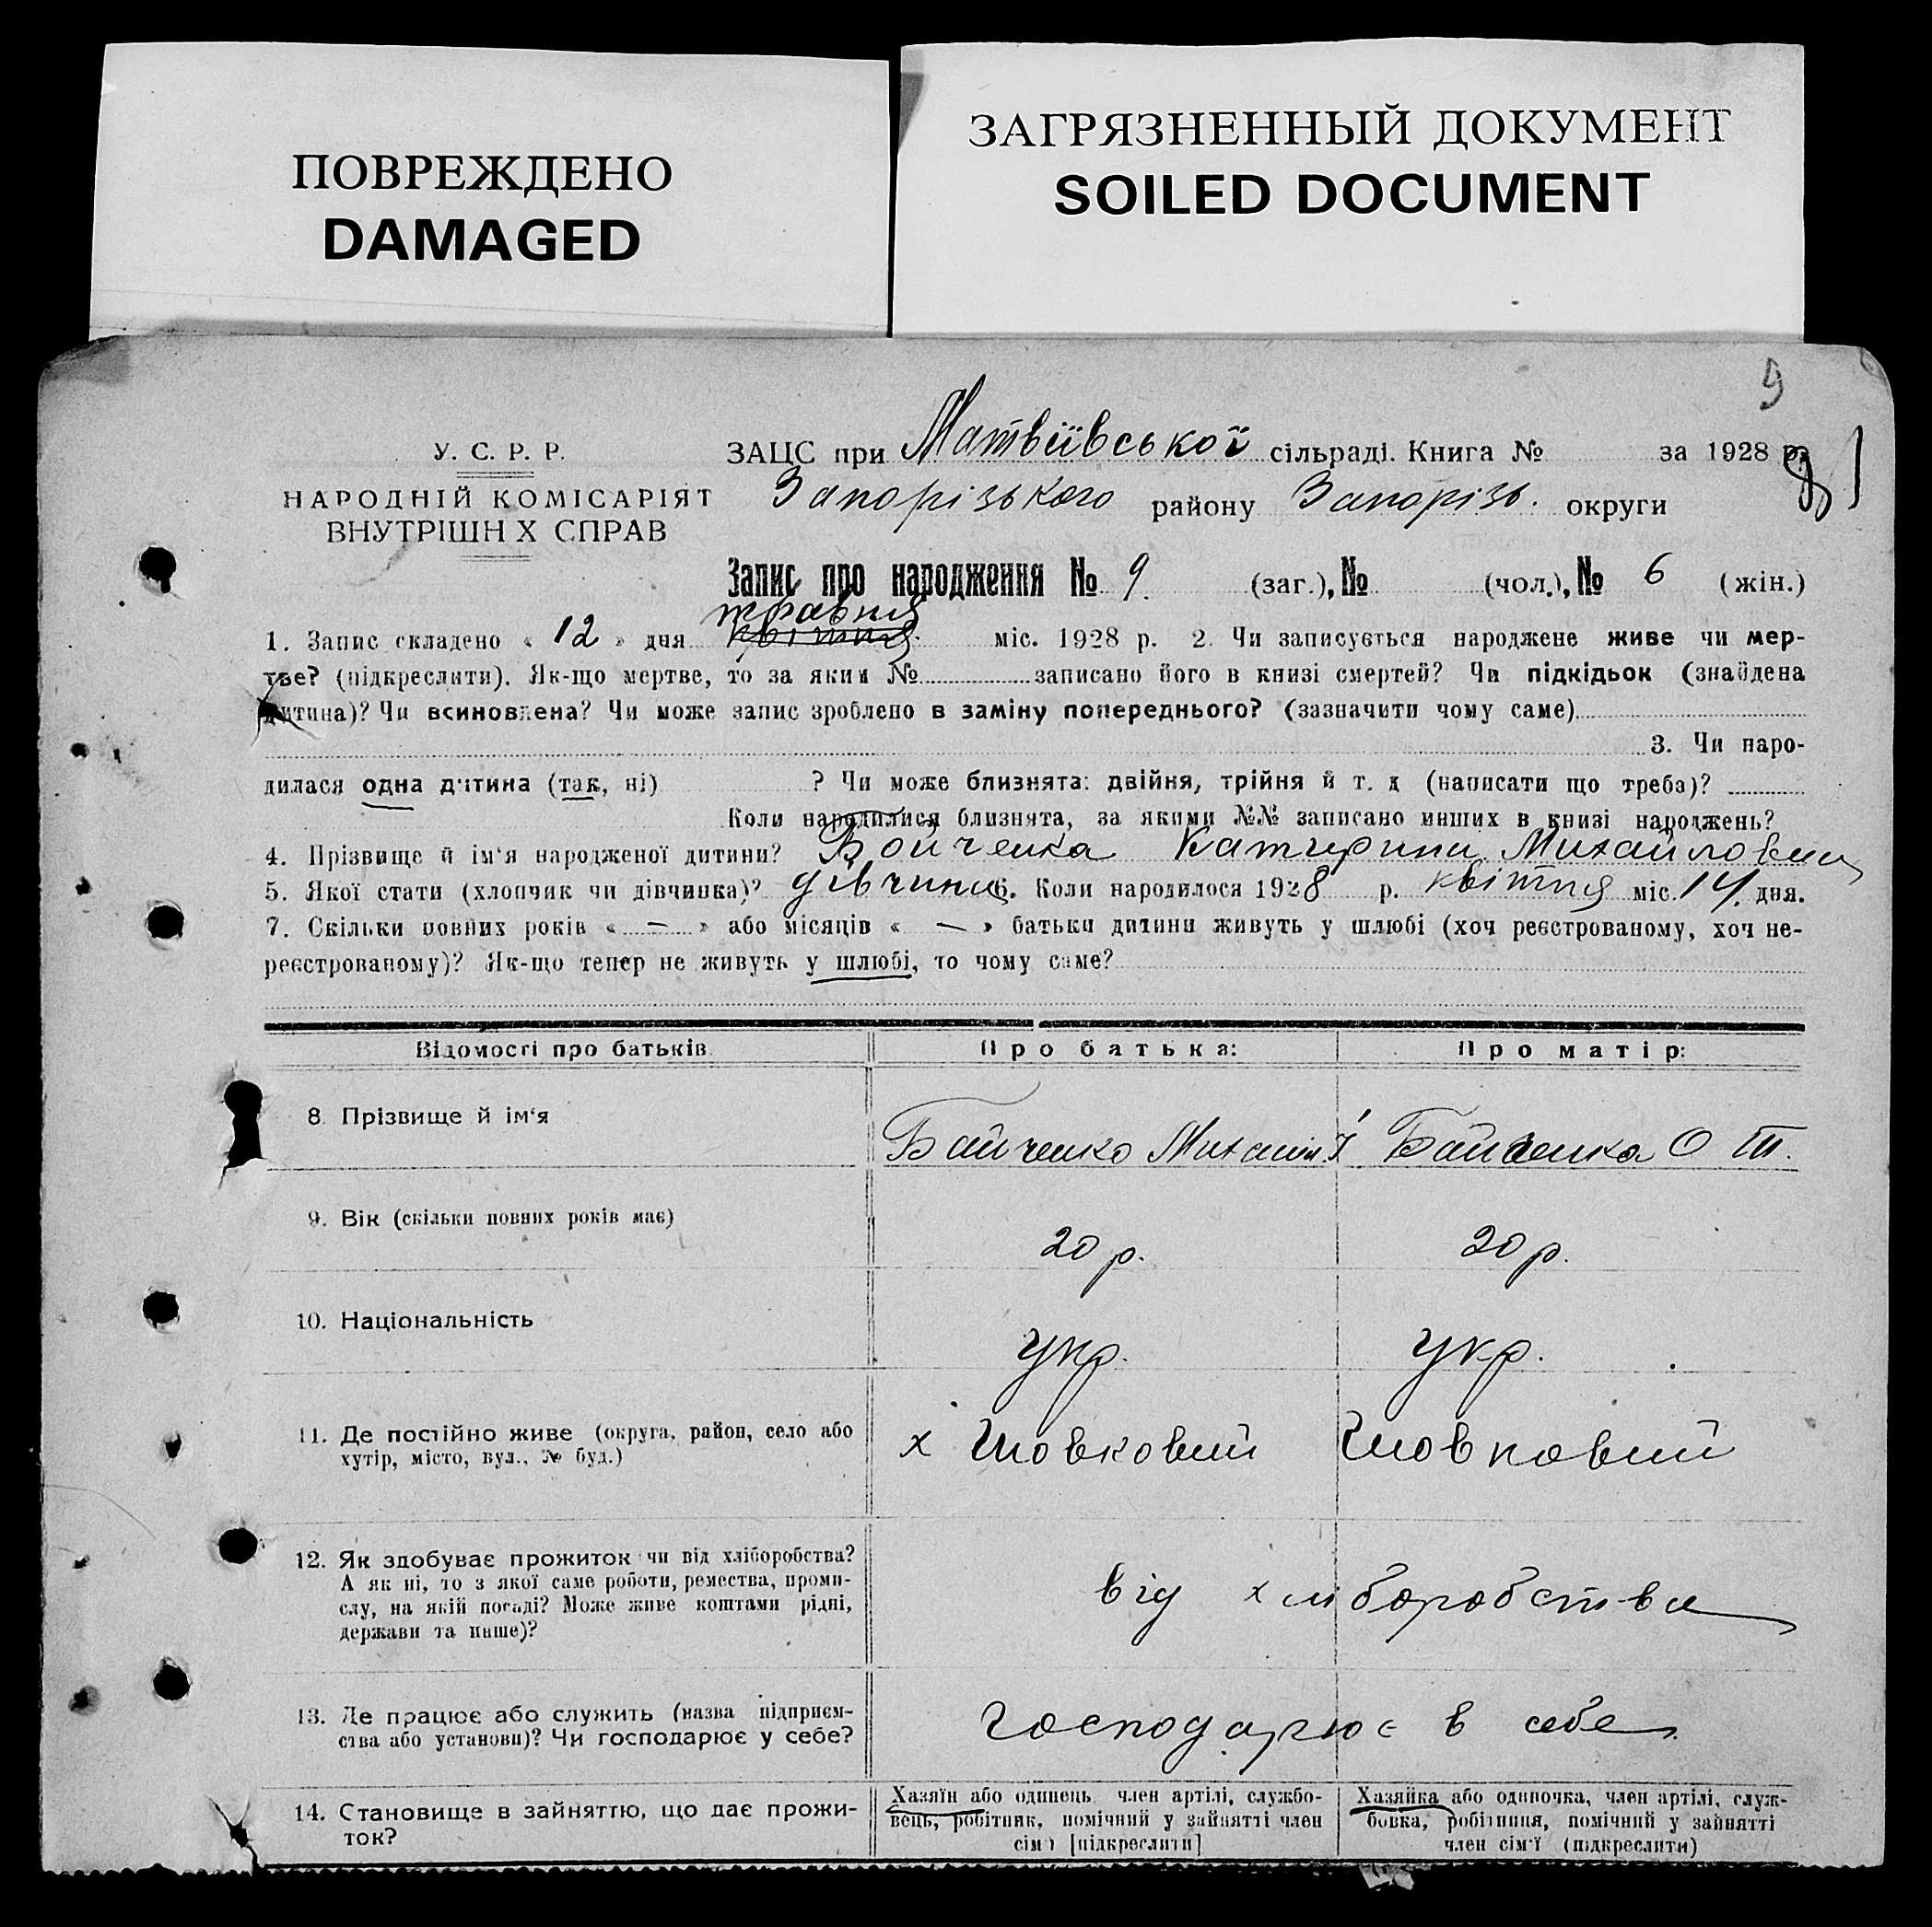 ПОВРЕЖДЕНО
DAMAGED
ЗАГРЯЗНЕННЫЙ ДОКУМЕНТ
SOILED DOCUMENT
9
У. С. Р. Р.
НАРОДНІЙ КОМІСАРІЯТ
ВНУТРІШН Х СПРАВ
ЗАЦС при Матвіївської сільраді. Книга № за 1928 р.
Запорізького району Запорізь. округи
Запис про народження № 9. (заг.), № (чол.), № 6 (жін.)
травня
1. Запис складено « 12 » дня квітня міс. 1928 р. 2. Чи записується народжене живе чи мер-
тве? (підкреслити). Як-що мертве, то за яким № записано його в книзі смертей? Чи підкідьок (знайдена
дитина)? Чи всиновлена? Чи може запис зроблено в заміну попереднього? (зазначити чому саме)
3. Чи наро-
дилася одна дитина (так, ні) ? Чи може близнята: двійня, трійня й т. д (написати що треба)?
Коли народилися близнята, за якими №№ записано инших в книзі народжень?
4. Прізвище й ім'я народженої дитини? Бойченка Катирини Михайловни
5. Якої стати (хлопчик чи дівчинка)? дівчина 6. Коли народилося 1928 р. квітня міс. 14. дня.
7. Скільки повних років « — » або місяців « — » батьки дитини живуть у шлюбі (хоч реєстрованому, хоч не-
реєстрованому)? Як-що тепер не живуть у шлюбі, то чому саме?
Відомості про батьків.
Про батька:
Про матір:
8. Прізвище й ім'я
Байченко Михаил І
Байченка О Т.
9. Вік (скільки повних років має)
20 р.
20 р.
10. Національність
укр.
укр.
11. Де постійно живе (округа, район, село або
хутір, місто, вул., № буд.)
х Шовковий
Шовковий
12. Як здобуває прожиток чи від хліборобства?
А як ні, то з якої саме роботи, ремества, проми-
слу, на якій посаді? Може живе коштами рідні,
держави та инше)?
від хліборобства
13. Де працює або служить (назва підприєм-
ства або установи)? Чи господарює у себе?
господарює в себе.
14. Становище в зайняттю, що дає прожи-
ток?
Хазяїн або одинець член артілі, службо-
вець, робітник, помічний у зайнятті член
сім'ї [підкреслити]
Хазяйка або одиночка, член артілі, служ-
бовка, робітниця, помічний у зайнятті
член сім'ї (підкреслити)